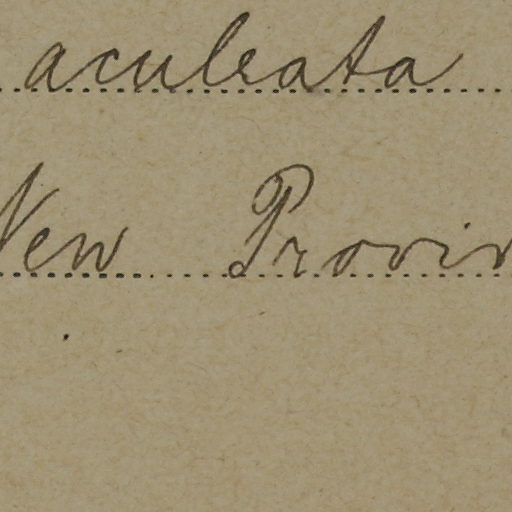 aculeata
New Provin